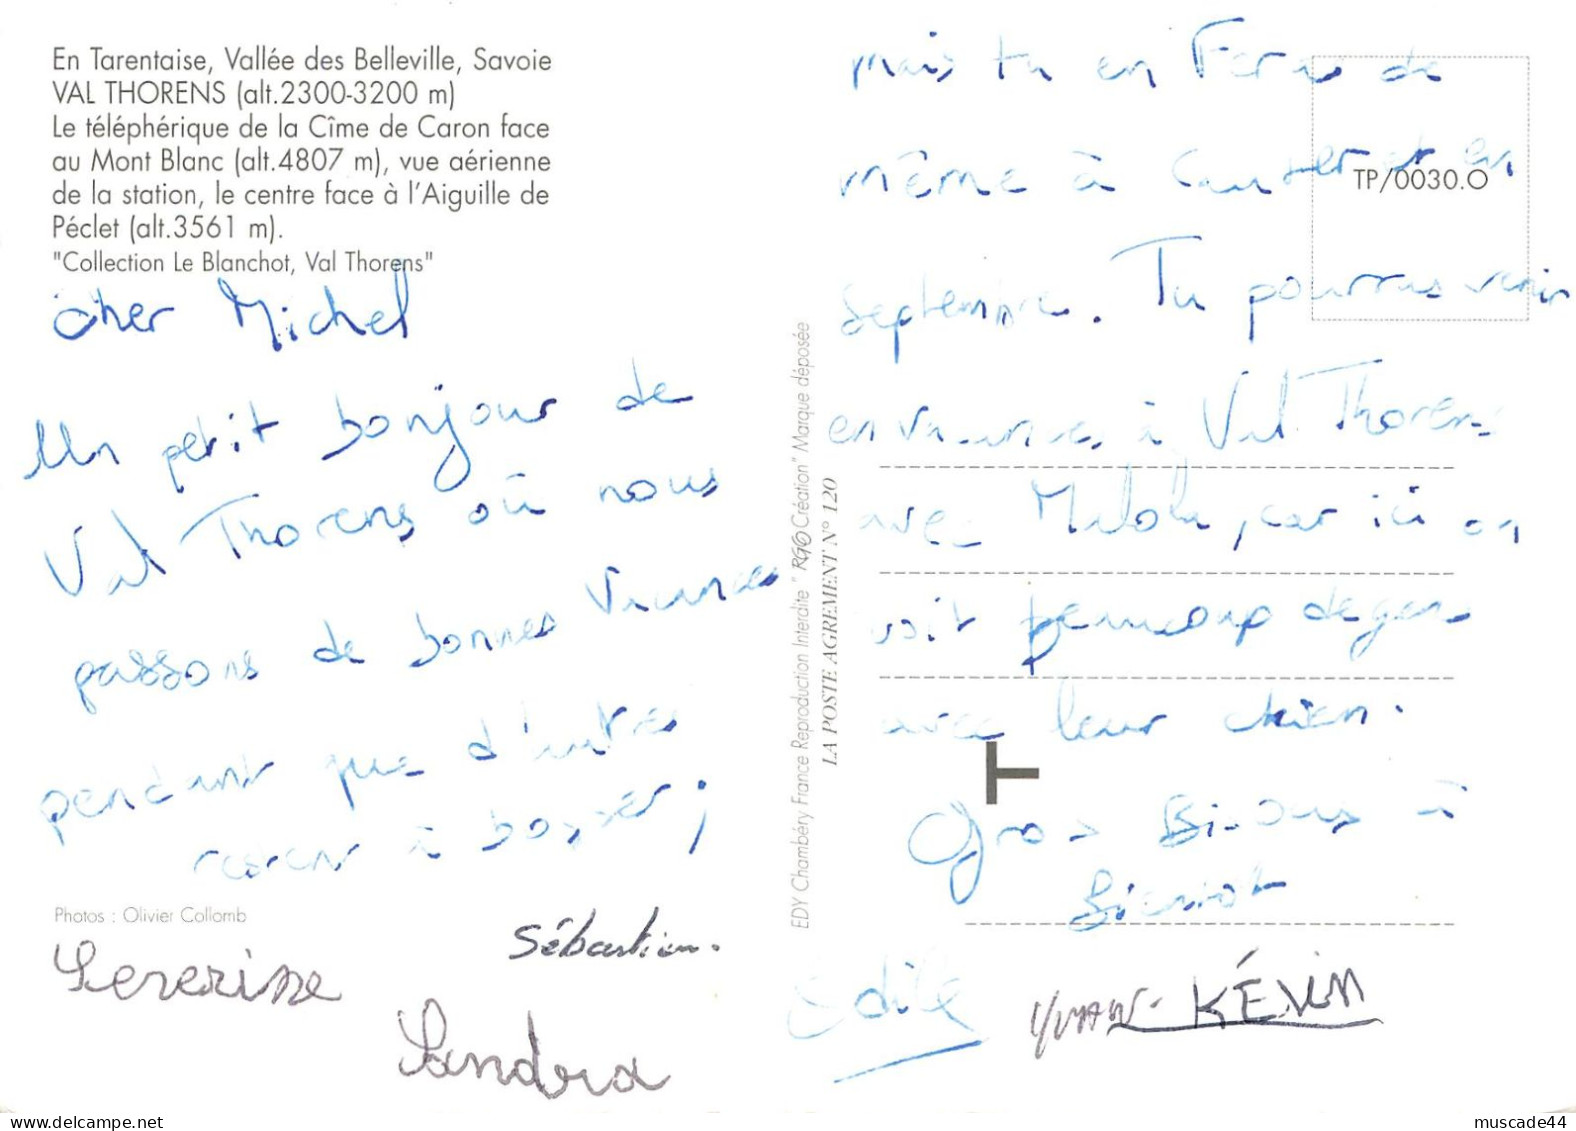 En Tarentaise, Vallée des Belleville, Savoie
VAL THORENS (alt.2300-3200 m)
Le téléphérique de la Cîme de Caron face
au Mont Blanc (alt.4807 m), vue aérienne
de la station, le centre face à l'Aiguille de
Péclet (alt.3561 m).
"Collection Le Blanchot, Val Thorens"
Cher Michel
Un petit bonjour de
Val Thorens où nous
passons de bonnes vacances
pendant que d'autres
restent à bosser ;
Photos : Olivier Collomb
Séverine
Sébastien.
Sandra
EDY Chambéry France Reproduction Interdite "RGO Création" Marque déposée
LA POSTE AGREMENT N° 120
TP/0030.O
mais tu en Feras de
même à et en
septembre. Tu pourras venir
en vacances à Val Thorens
avec, car ici on
voit beaucoup de gens
avec leur chien.
T
Gros Bisous à
bientôt
Odile
Yvan. KÉVIN
muscade44